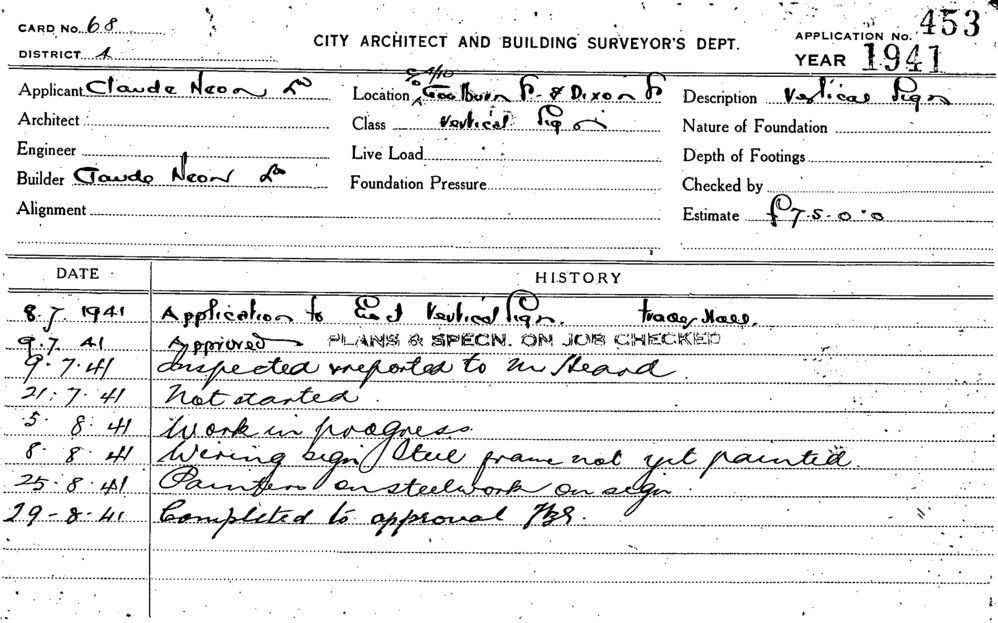 CARD No. 68
DISTRICT A
CITY ARCHITECT AND BUILDING SURVEYOR'S DEPT.
APPLICATION No. 453
YEAR 1941
Applicant Claude Neon Ld
Architect
Engineer
Builder Claude Neon Ld
Alignment
Location Goulburn St & Dixon St
Class Vertical Sign
Live Load
Foundation Pressure
Description Vertical Sign
Nature of Foundation
Depth of Footings
Checked by
Estimate £75-0-0
DATE HISTORY
8.7.1941 Application to Erect Vertical Sign. Trades Hall.
9.7.41 Approved PLANS & SPECN. ON JOB CHECKED
9.7.41 Inspected & reported to Mr Heard
21.7.41 Not started.
5.8.41 Work in progress
8.8.41 Wiring sign Steel frame not yet painted.
25.8.41 Painters on steelwork on sign
29-8-41 Completed to approval